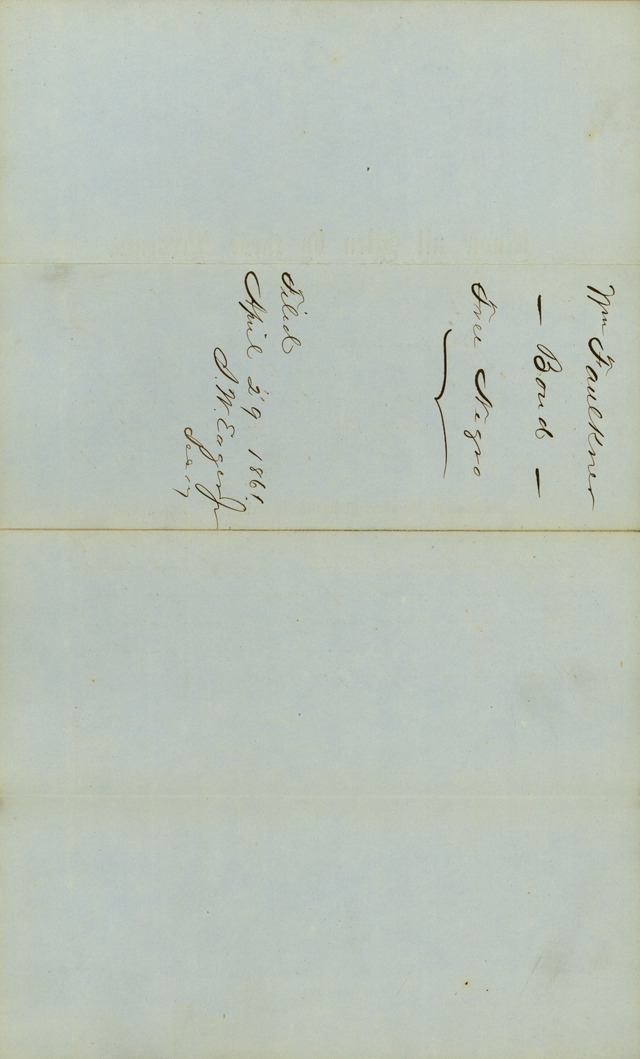 Wm Faulkner
— Bond —
Free Negro
Filed
April 29 1861.
S. W. Eager Jr